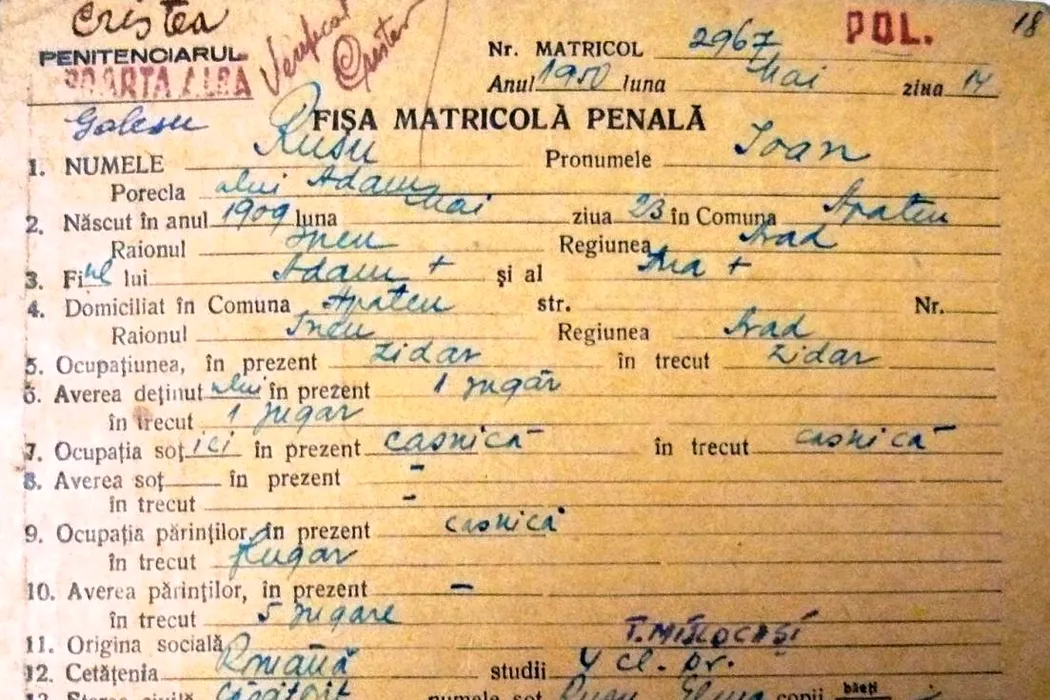 Cristea 18
PENITENCIARUL Verificat Nr. MATRICOL 2967 POL.
POARTA ALBA Cristea Anul 1950 luna Mai ziua 14
Galesu FIȘA MATRICOLĂ PENALĂ
1. NUMELE Rusu Pronumele Ioan
Porecla alui Adam
2. Născut în anul 1909 luna Mai ziua 23 în Comuna Apateu
Raionul Ineu Regiunea Arad
3. Fiul lui Adam + și al Ana +
4. Domiciliat în Comuna Apateu str. Nr.
Raionul Ineu Regiunea Arad
5. Ocupațiunea, în prezent zidar în trecut zidar
6. Averea deținutului în prezent 1 jugăr
în trecut 1 jugar
7. Ocupația soției în prezent casnică în trecut casnică
8. Averea soț în prezent -
în trecut -
9. Ocupația părinților, în prezent casnică
în trecut plugar
10. Averea părinților, în prezent -
în trecut 5 jugare
11. Origina socială T. MIJLOCAȘI
12. Cetățenia Română studii 4 cl. pr.
13 Starea civilă căsătorit numele soț Rusu Elena copii băeți